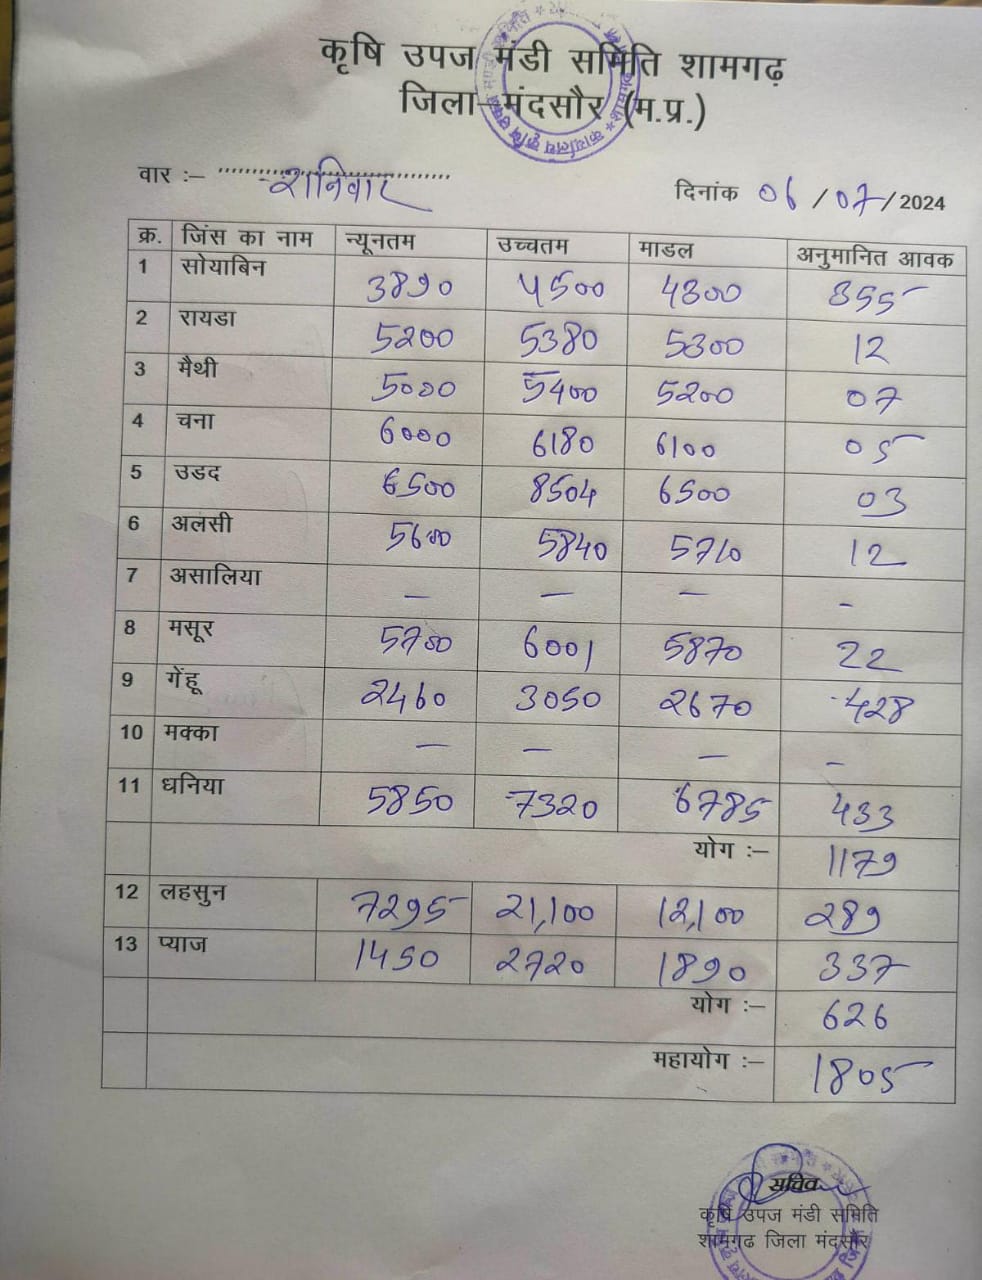 कृषि उपज मंडी समिति शामगढ़
जिला–मंदसौर (म.प्र.)
वार :– शनिवार
दिनांक 06/07/2024
क्र. जिंस का नाम न्यूनतम उच्चतम माडल अनुमानित आवक
1 सोयाबिन 3890 4500 4300 355
2 रायडा 5200 5380 5300 12
3 मैथी 5000 5400 5200 07
4 चना 6000 6180 6100 05
5 उडद 6500 8504 6500 03
6 अलसी 5600 5840 5710 12
7 असालिया – – – -
8 मसूर 5700 6001 5870 22
9 गेंहू 2460 3050 2670 428
10 मक्का – – – –
11 धनिया 5850 7320 6785 433
योग :– 1179
12 लहसुन 7295 21,100 12,100 289
13 प्याज 1450 2720 1890 337
योग :– 626
महायोग :– 1805
सचिव
कृषि उपज मंडी समिति
शामगढ जिला मंदसौर